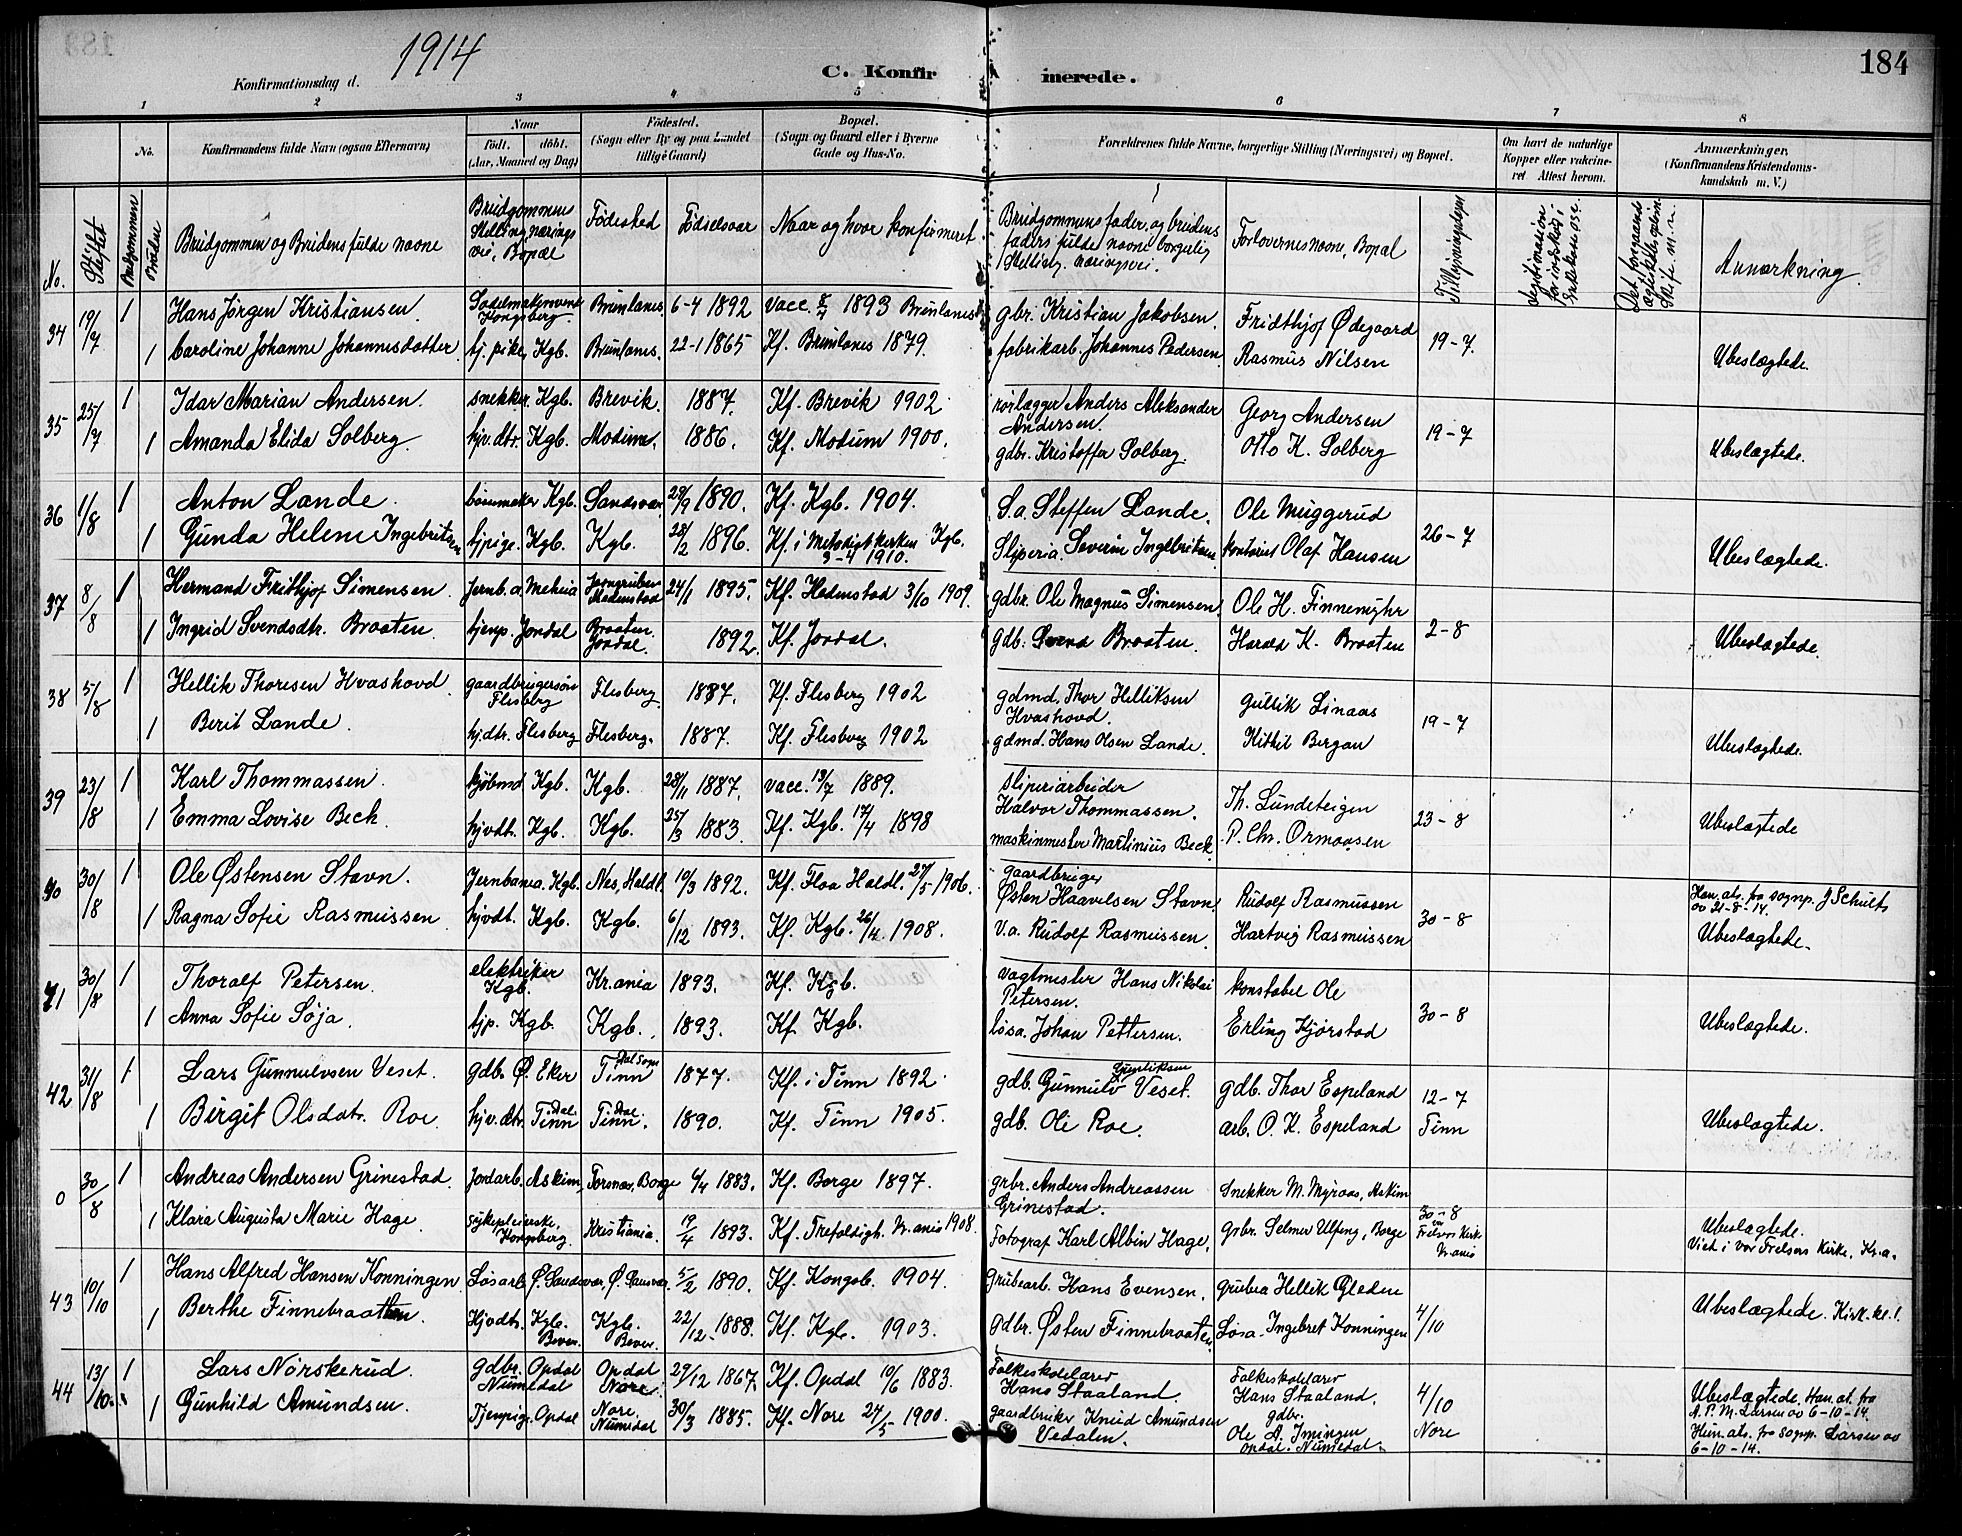 1914
184
Konfirmationsdag d.
C. Konfirmerede.
1 2 3 4 5 6 7 8
No. Konfirmandens fulde Navn (ogsaa Efternavn) Naar født. døbt. (Aar, Maaned og Dag) Fødested. (Sogn eller By og paa Landet tillige Gaard) Bopæl. (Sogn og Gaard eller i Byerne Gade og Hus-No. Forældrenes fulde Navne, borgerlige Stilling (Næringsvei) og Bopæl. Om havt de naturlige Kopper eller vakcineret Attest herom. Anmærkninger. (Konfirmandens Kristendomskundskab m. V.)
No. Stiftet Brudgommen Bruden Brudgommen og Brudens fulde navne Brudgommen Stilling, næringsvei, Bopæl Fødested Fødselsaar Naar og hvor konfirmeret. Brudgommens fader, og brudens faders fulde navne borgerlig Stilling. næringsvei. Forlovernes navne, Bopæl Tillysningsdagen Anmærkning
34 19/7 1 Hans Jörgen Kristiansen. Sadelmakersvend Kongsberg. Brunlanes. 6-4 1892 vacc. 1893 Brunlanes gbr. Kristian Jakobsen. Fridthjof Ødegaard 19-7.
1 Caroline Johanne Johannesdatter. tj. pike, Kgb. Brunlanes. 22-1 1865 Kf. Brunlanes 1879. fabrikarb. Johannes Pedersen. Rasmus Nilsen Ubeslægtede.
35 25/7 1 Idar Marian Andersen. snekker. Kgb. Brevik. 1887. Kf. Brevik 1902 rørlægger Anders Aleksander Andersen. Georg Andersen 19-7
1 Amanda Elida Solberg. hjv. dtr. Kgb. Modum. 1886. Kf. Modum 1900. gdbr. Kristoffer Solberg. Otto K. Solberg Ubeslægtede.
36 1/8 1 Anton Lande. Kgb. Sandsvær 29/9 1890. Kf. Kgb. 1904. S.a. Steffen Lande. Ole Muggerud 26-7
1 Gunda Helene Ingebritsen tjpige. Kgb. Kgb. 28/2 1896. Kf. i Metodistkirken Kgb. 3-4 1910. Sliperia. Severin Ingebritsen. kontorist Olaf Hansen Ubeslægtede.
37 8/8 1 Hermand Frithjof Simensen. Jernb. a. Meheia Jerngruben Hadenstad 24/1 1895. Kf. Hedenstad 3/10 1909. gdbr. Ole Magnus Simensen. Ole H. Finnemyhr 2-8
1 Ingrid Svendsdtr. Braaten. tjenp. Jondal Braaten. Jondal. 1892. Kf. Jondal. gdb. Svend Braaten. Harald K. Braaten Ubeslægtede.
38 5/8 1 Hellik Thoresen Hvashovd. gaardbrugersøn Flesberg Flesberg. 1887. Kf. Flesberg 1902 gdmd. Thor Helliksen Hvashovd. Gullik Linaas 19-7
1 Berit Lande. hj.dtr. Flesberg Flesberg. 1887. Kf. Flesberg 1902 gdmd. Hans Olsen Lande. Kittil Bergan Ubeslægtede.
39 23/8 1 Karl Thommassen. kjøbmd. Kgb. Kgb. 28/11 1887. vacc. 13/7 1889. sliperiarbeider Halvor Thommassen. Th. Lundeteigen 23-8
1 Emma Lovise Beck. hjvdt. Kgb. Kgb. 25/3 1883. Kf. Kgb. 17/4 1898 maskinmester Martinius Beck. P. Chr. Ormaasen Ubeslægtede
40 30/8 1 Ole Østensen Stavn. Jernbanea. Kgb. Nes, Haldl. 10/3 1892. Kf. Flaa Haldl. 27/5 1906. gaardbruger Østen Haavelsen Stavn. Rudolf Rasmussen 30-8 Han. at. fra sognp. J Schultz av 21-8-14.
1 Ragna Sofie Rasmussen hjvdt. Kgb. Kgb. 6/12 1893. Kf. Kgb. 26/4 1908. V.a. Rudolf Rasmussen. Hartvig Rasmussen Ubeslægtede.
41 30/8 1 Thoralf Petersen. elektriker Kgb. Kr.ania 1893. Kf. Kgb. vagtmester Hans Nikolai Petersen. konstabel Ole 30-8
1 Anna Sofie Søja. tjp. Kgb. Kgb. 1893. Kf. Kgb. løsa. Johan Pettersen. Erling Kjørstad Ubeslægtede.
42 31/8 1 Lars Gunnulvsen Veset. gdb. Ø. Eker Dal sogn Tinn 1877. Kf. i Tinn 1892. gdb. Gunnulv Gunliksen Veset. gdb. Thor Espeland 12-7
1 Birgit Olsdatr. Roe. hjv. dtr. Dal Tinn Dal Tinn. 1890. Kf. Tinn 1905. gdb. Ole Roe. arb. O. K. Espeland Tinn Ubeslægtede.
0 30/8 1 Andreas Andersen Grinestad. Jordarb. Askim, Torsnes, Borge 6/4 1883. Kf. Borge 1897. grbr. Anders Andreassen Grinestad. Snekker M. Myraas, Askim 30-8
1 Klara Augusta Marie Hage. sykepleierske, Kongsberg. Kristiania. 19/4 1893. Kf. Trefoldigh. Kr.ania 1908. Fotograf Karl Albin Hage. Grbr. Selmer Ulfeng, Borge vor Frelsers Kirke Kr.ania Ubeslægtede. Viet i vor Frelsers Kirke. Kr.a.
43 10/10 1 Hans Alfred Hansen Konningen. Løsarb. Ø. Sandsvær. Ø. Sansvær. 5/2 1890. Kf. Kongsb. 1904. Grubearb. Hans Evensen. Grubea Hellik Gleden 4/10
1 Berthe Finnebraaten. Hjvdtr. Kgb. Bever. Kgb. Bever. 22/12 1888. Kf. Kgb. 1903. gdbr. Østen Finnebraaten. Løsa. Ingebret Konningen Ubeslægtede. Kirk. kl. 1.
44 13/10. 1 Lars Norskerud. gdbr. Opdal Numedal Opdal Nore. 29/12 1867. Kf. Opdal 10/6 1883. Folkeskolelærer Hans Staaland. Folkeskolelærer Hans Staaland. 4/10 Ubeslægtede. Han. at. fra A. P. M. Larsen av 6-10-14.
1 Gunhild Amundsen. Tjenpige. Opdal Nore. Numedal 30/3 1885. Kf. Nore 24/5 1900. gaardbruker Knud Amundsen Vedalen. gdbr. Ole A. Imingen Opdal. Numedal. Nore Hun. at. fra sognp. Larsen av 6-10-14.